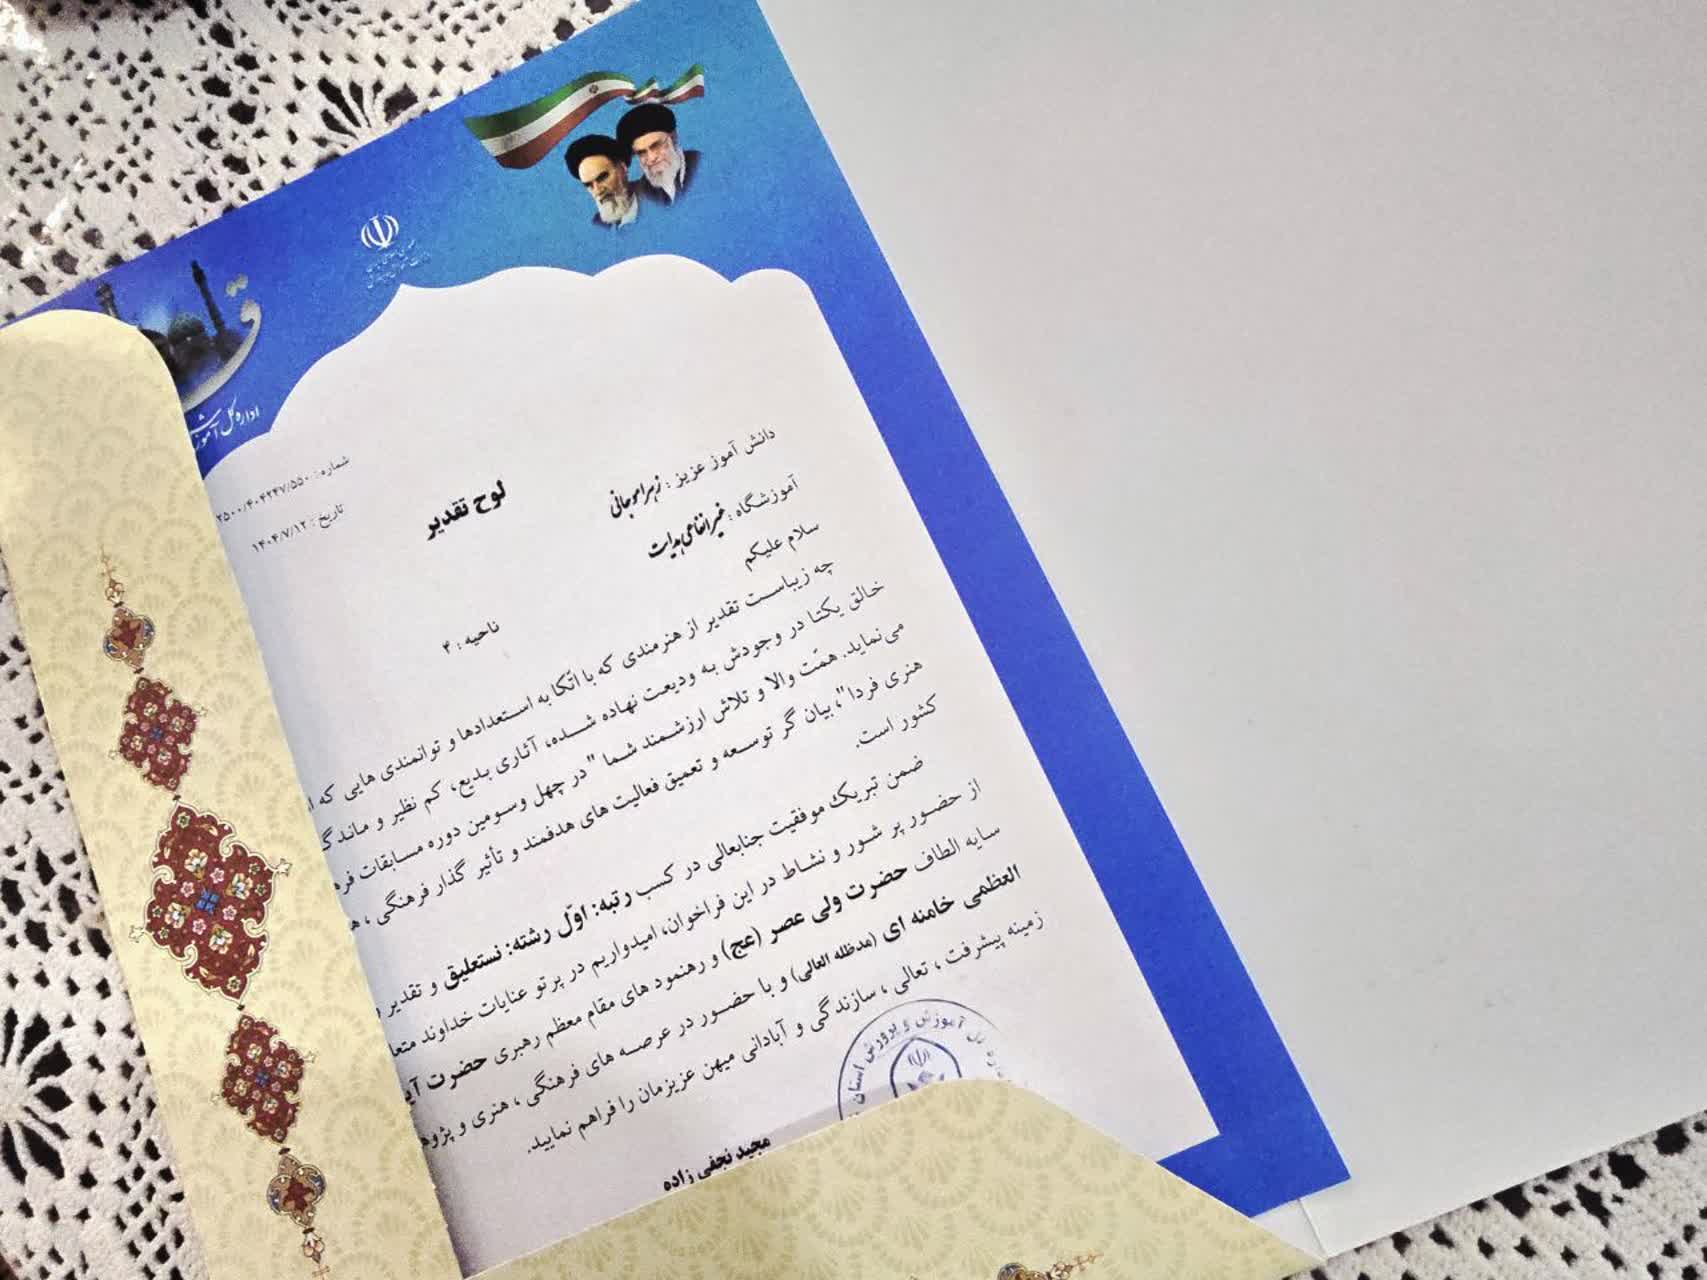 اداره کل آموزش
شماره: ۲۵۰۰/۴۰۴۲۴۷/۵۵۰
تاریخ: ۱۴۰۴/۷/۱۲
لوح تقدیر
دانش آموز عزیز :
آموزشگاه : غیرانتفاعی هدایت
ناحیه : ۴
سلام علیکم
چه زیباست تقدیر از هنرمندی که با اتّکا به استعدادها و توانمندی هایی که
خالق یکتا در وجودش به ودیعت نهاده شده، آثاری بدیع، کم نظیر و
می نماید. همّت والا و تلاش ارزشمند شما "در چهل وسومین دوره مسابقات
هنری فردا"، بیان گر توسعه و تعمیق فعالیت های هدفمند و تأثیر گذار فرهنگی ،
کشور است.
ضمن تبریک موفقیت جنابعالی در کسب رتبه: اوّل رشته: نستعلیق و تقدیر
از حضور پر شور و نشاط در این فراخوان، امیدواریم در پرتو عنایات خداوند
سایه الطاف حضرت ولی عصر (عج) و رهنمود های مقام معظم رهبری حضرت
العظمی خامنه ای (مدظله العالی) و با حضور در عرصه های فرهنگی ، هنری و
زمینه پیشرفت ، تعالی ، سازندگی و آبادانی میهن عزیزمان را فراهم نمایید.
آموزش و پرورش استان
مجید نجفی زاده